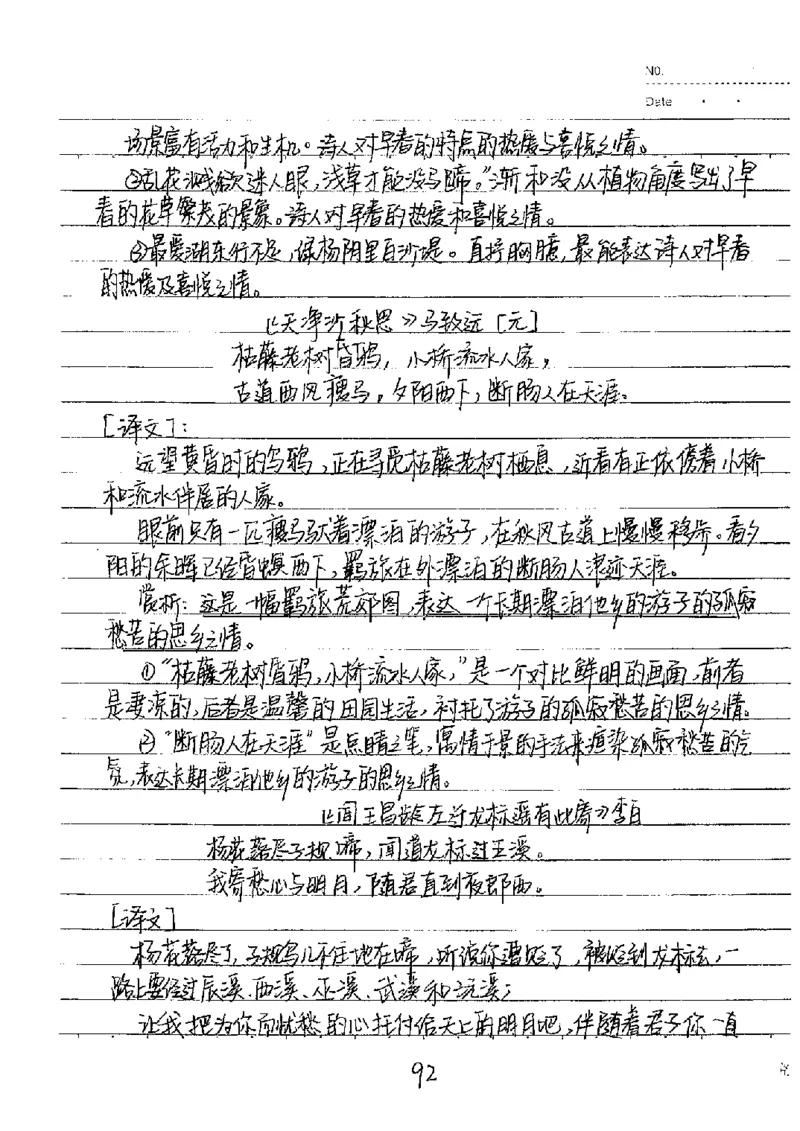 No.
Date
场景富有活力和生机。诗人对早春的特点的热爱与喜悦之情。
③乱花渐欲迷人眼,浅草才能没马蹄。"渐和没从植物角度写出了早
春的花草繁茂的景象。诗人对早春的热爱和喜悦之情。
④最爱湖东行不足,绿杨阴里白沙堤。直抒胸臆,最能表达诗人对早春
的热爱及喜悦之情。
《天净沙秋思》马致远[元]
枯藤老树昏鸦,小桥流水人家,
古道西风瘦马。夕阳西下,断肠人在天涯。
[译文]:
远望黄昏时的乌鸦,正在寻觅枯藤老树栖息,近看有正依傍着小桥
和流水伴居的人家。
眼前只有一匹瘦马驮着漂泊的游子,在秋风古道上慢慢移步。看夕
阳的余晖已经昏暝西下,羁旅在外漂泊的断肠人浪迹天涯。
赏析:这是一幅羁旅荒郊图,表达一个长期漂泊他乡的游子的孤寂
愁苦的思乡之情。
①"枯藤老树昏鸦,小桥流水人家,"是一个对比鲜明的画面,前者
是凄凉的,后者是温馨的田园生活,衬托了游子的孤寂愁苦的思乡之情。
②"断肠人在天涯"是点睛之笔,寓情于景的手法来渲染孤寂愁苦的气
氛,表达长期漂泊他乡的游子的思乡之情。
《闻王昌龄左迁龙标遥有此寄》李白
杨花落尽子规啼,闻道龙标过五溪。
我寄愁心与明月,随君直到夜郎西。
[译文]
杨花落尽了,子规鸟儿不住地在啼,听说你遭贬了,被贬到龙标去,一
路上要经过辰溪、西溪、巫溪、武溪和沅溪;
让我把为你而忧愁的心托付给天上的明月吧,伴随着君子你一直
92